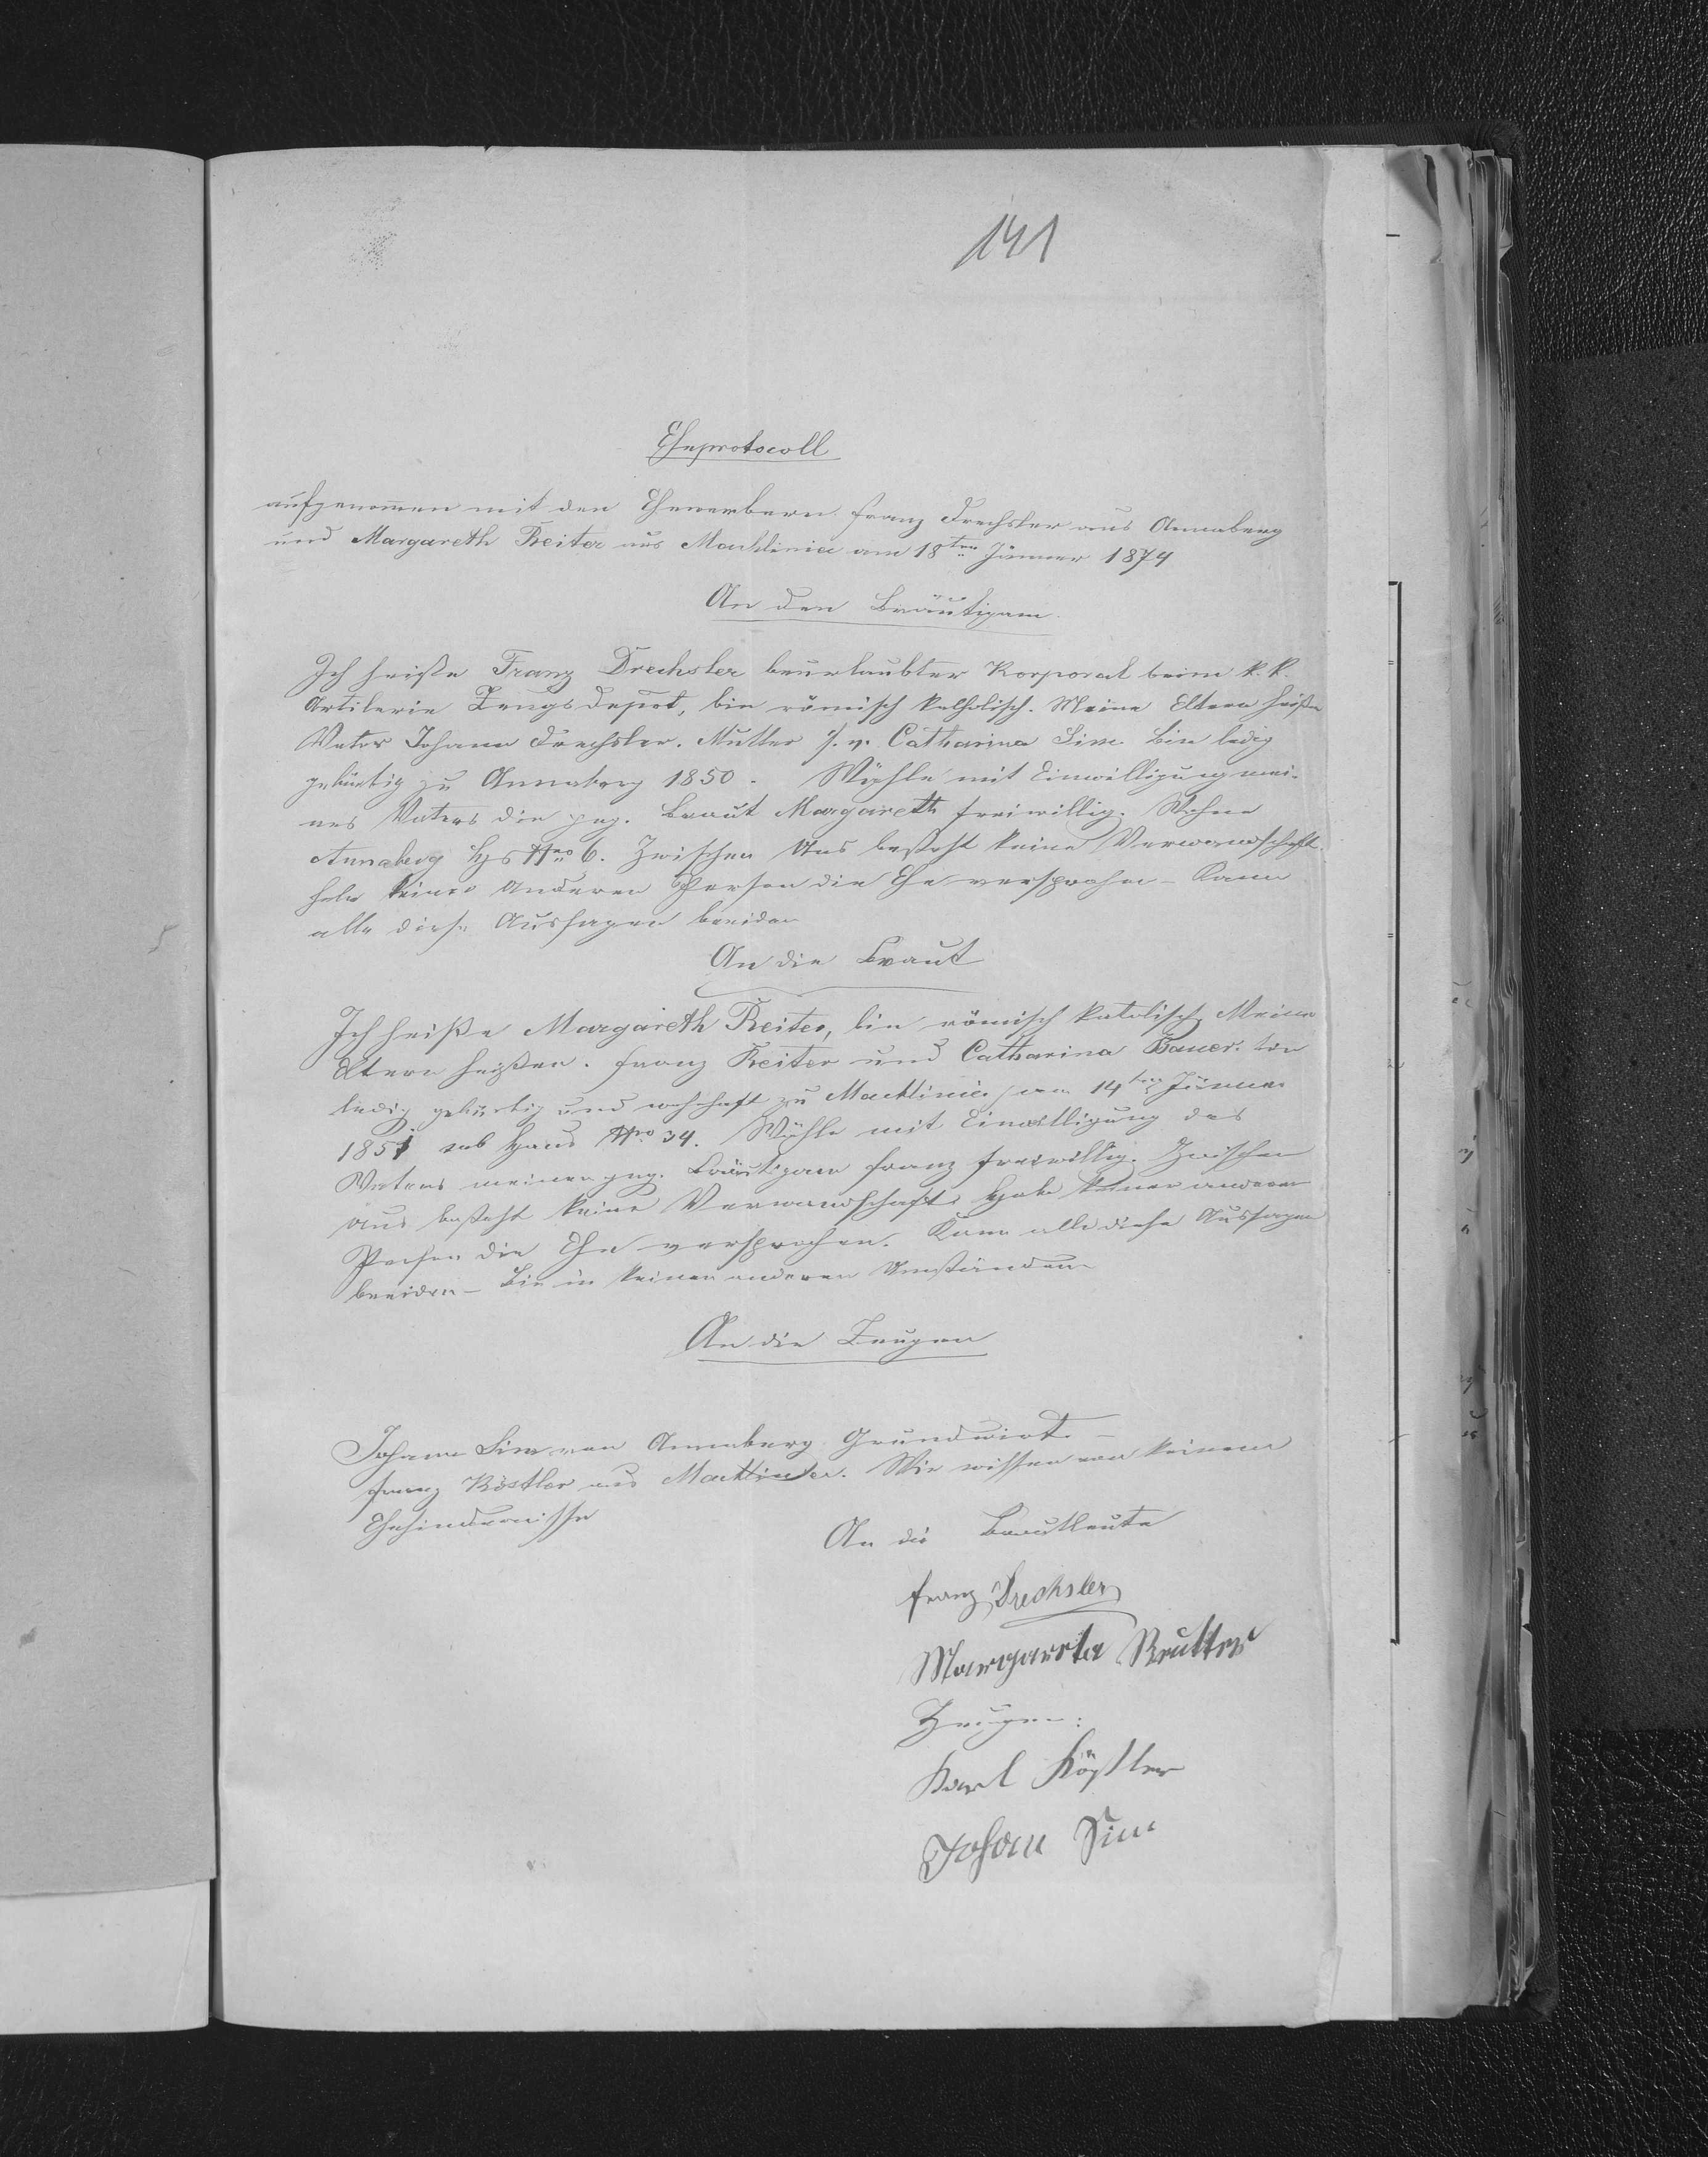 141
Eheprotocoll
aufgenommen mit den Ehewerbern Franz Drechsler aus Annaberg
und Margareth Reiter aus Machlinier am 18ten Jänner 1874
An den Bräutigam.
Ich heiße Franz Drechsler beurlaubter Korporal beim k. k.
Artilerie Zeugs Depot, bin römisch katholisch. Meine Eltern heißen
Vater Johann Drechsler. Mutter Catharina Sim. bin ledig
gebürtig zu Annaberg 1850. Wähle mit Einwilligung mei-
nes Vaters die geg. Braut Margareth freiwillig. Wohne
Annaberg Hs Nro 6. Zwischen Uns besteht keine Verwandschaft.
habe keiner Anderen Person die Ehe versprochen - Kann
alle diese Aussagen beeiden
An die Braut
Ich heiße Margareth Reiter, bin römisch katolisch Meine
Eltern heißen. Franz Reiter und Catharina Bauer. bin
ledig gebürtig und wohnhaft zu Machlinier am 14ten Jänner
1851 sub Haus Nro 34. Wähle mit Einwilligung des
Vaters meinen geg. Bräutigam Franz freiwillig. Zwischen
uns besteht keine Verwandschaft. Habe keiner anderen
Person die Ehe versprochen. Kann alle diese Aussagen
beeiden - Bin in keinen anderen Umständen
An die Zeugen
Johann Sim von Annaberg Grundwirt -
Franz Köstler aus Machlinier. Wir wissen von keinem
Ehehindernisse
An die Brautleute
Franz Drechsler
Margareta Reutter
Zeugen:
Karl Köstler
Johan Sim